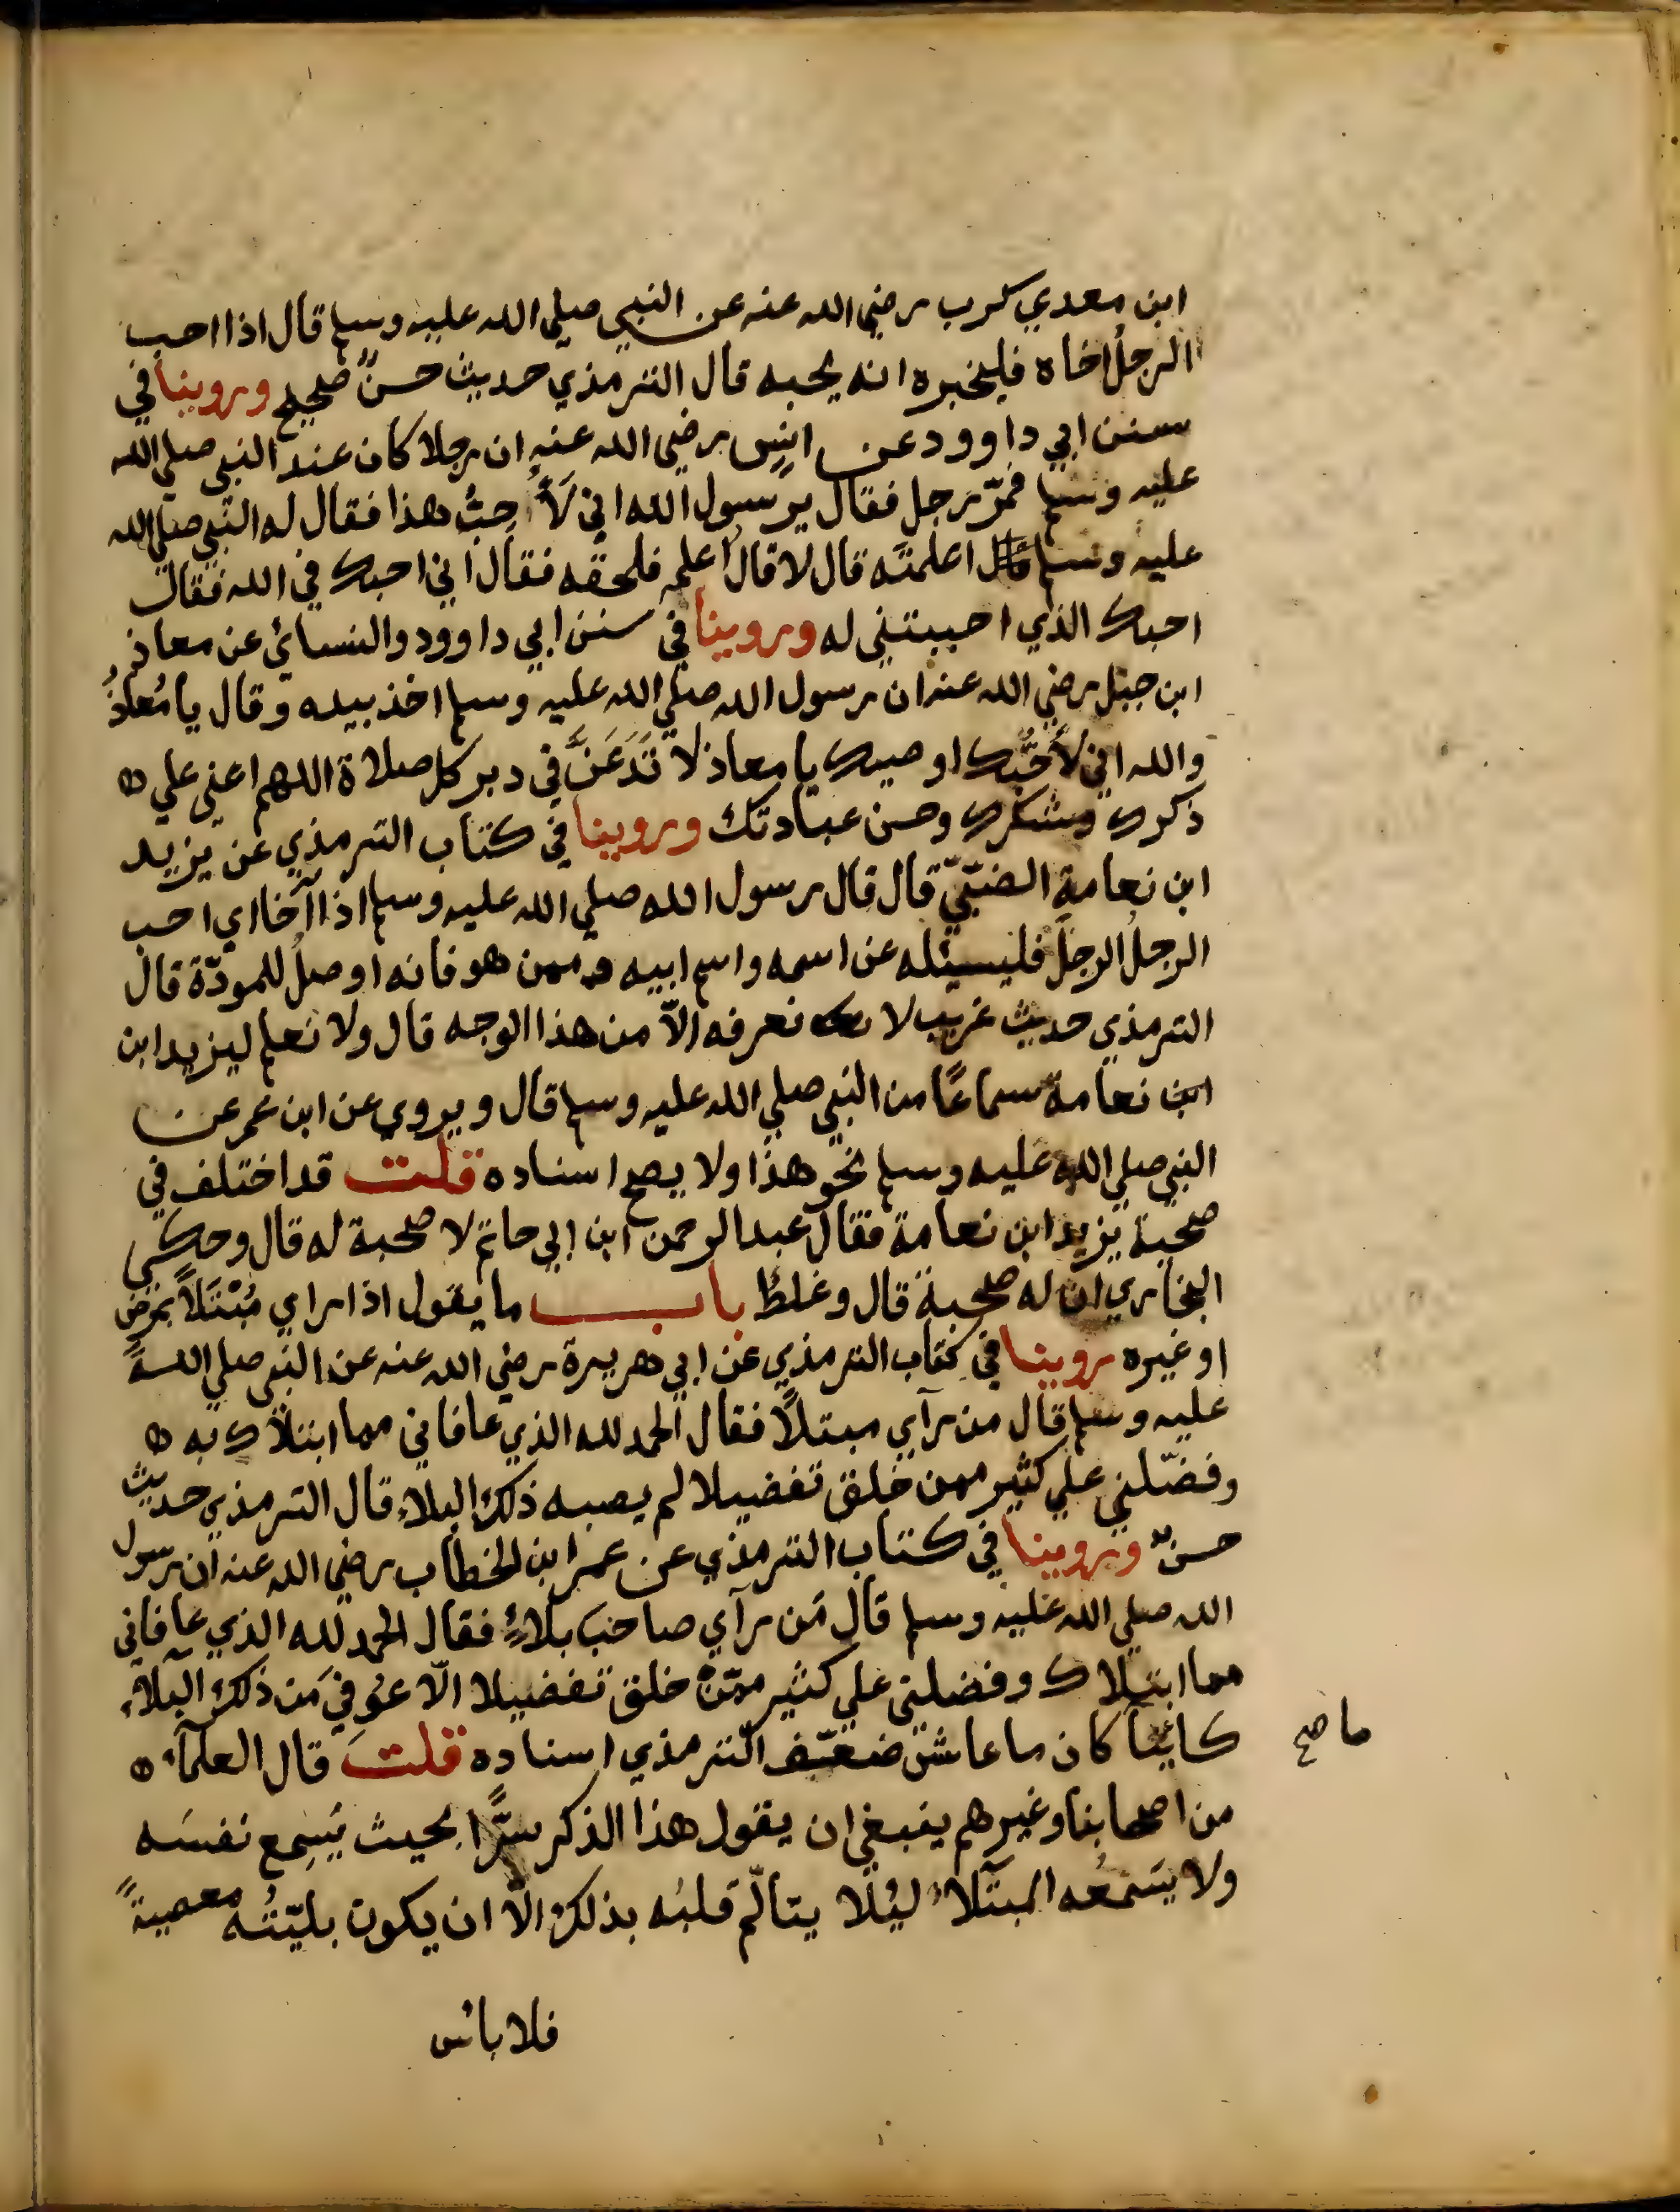 ابن معدي كرب رضي الله عنه عن النبي صلي الله عليه وسلم قال اذا احب
الرجلُ اخاه فليخبره انه يحبه قال الترمذي حديث حسنٌ صحيح وروينا في
سنن ابي داوود عن انسٍ رضي الله عنه ان رجلا كان عند النبي صلي الله
عليه وسلم فمرّ رجل فقال يرسول الله اني لَأُحِبُّ هذا فقال له النبي صلي الله
عليه وسلم اعلمتَه قال لا قال اعلمه فلحقه فقال اني احبك في الله فقال
احبك الذي احببتني له وروينا في سنن ابي داوود والنسائي عن معاذ
ابن جبل رضي الله عنه ان رسول الله صلي الله عليه وسلم اخذ بيده وقال يا مُعاذُ
والله اني لَأُحِبُّك اوصيك يا معاذ لا تَدَعَنَّ في دبر كل صلاة اللهم اعني علي
ذكرك وشكرك وحسن عبادتك وروينا في كتاب الترمذي عن يزيد
ابن نعامة الضبّيّ قال قال رسول الله صلي الله عليه وسلم اذا آخا اي احب
الرجلُ الرجلَ فليسئله عن اسمه واسم ابيه وممن هو فانه اوصلُ للمودّة قال
الترمذي حديث غريب لا نعرفه الاّ من هذا الوجه قال ولا نعلم ليزيد ابن
ابن نعامة سماعًا من النبي صلي الله عليه وسلم قال ويروي عن ابن عمر عن
النبي صلي الله عليه وسلم نحو هذا ولا يصح اسناده قلت قد اختلف في
صحبة يزيد ابن نعامة فقال عبد الرحمن ابن ابي حاتم لا صحبة له قال وحكي
البخاري ان له صحبة قال وغلط باب ما يقول اذا راي مُبْتَلًا بمرض
او غيره روينا في كتاب الترمذي عن ابي هريرة رضي الله عنه عن النبي صلي الله
عليه وسلم قال من رآي مبتلاً فقال الحمد لله الذي عافاني مما ابتلاك به
وفضّلني علي كثير ممن خلق تفضيلا لم يصبه ذلك البلاء قال الترمذي حديث
حسنٌ وروينا في كتاب الترمذي عن عمر ابن الخطاب رضي الله عنه ان رسول
الله صلي الله عليه وسلم قال مَن رآي صاحبَ بلاءٍ فقال الحمد لله الذي عافاني
مما ابتلاك وفضلني علي كثير ممّن خلق تفضيلا الاّ عوفي مَن ذلك البلاء
كاينا كان ما عاش ضعّف الترمذي اسناده قلت قال العلمآء
ما صح
من اصحابنا وغيرهم ينبغي ان يقول هذا الذكر سرًّا بحيث يَسِمع نفسَه
ولا يسَمعُه المبتلاء ليُلا يتالّم قلبُه بذلك الاّ ان يكون بليّتُه معصيةً
فلا بائس